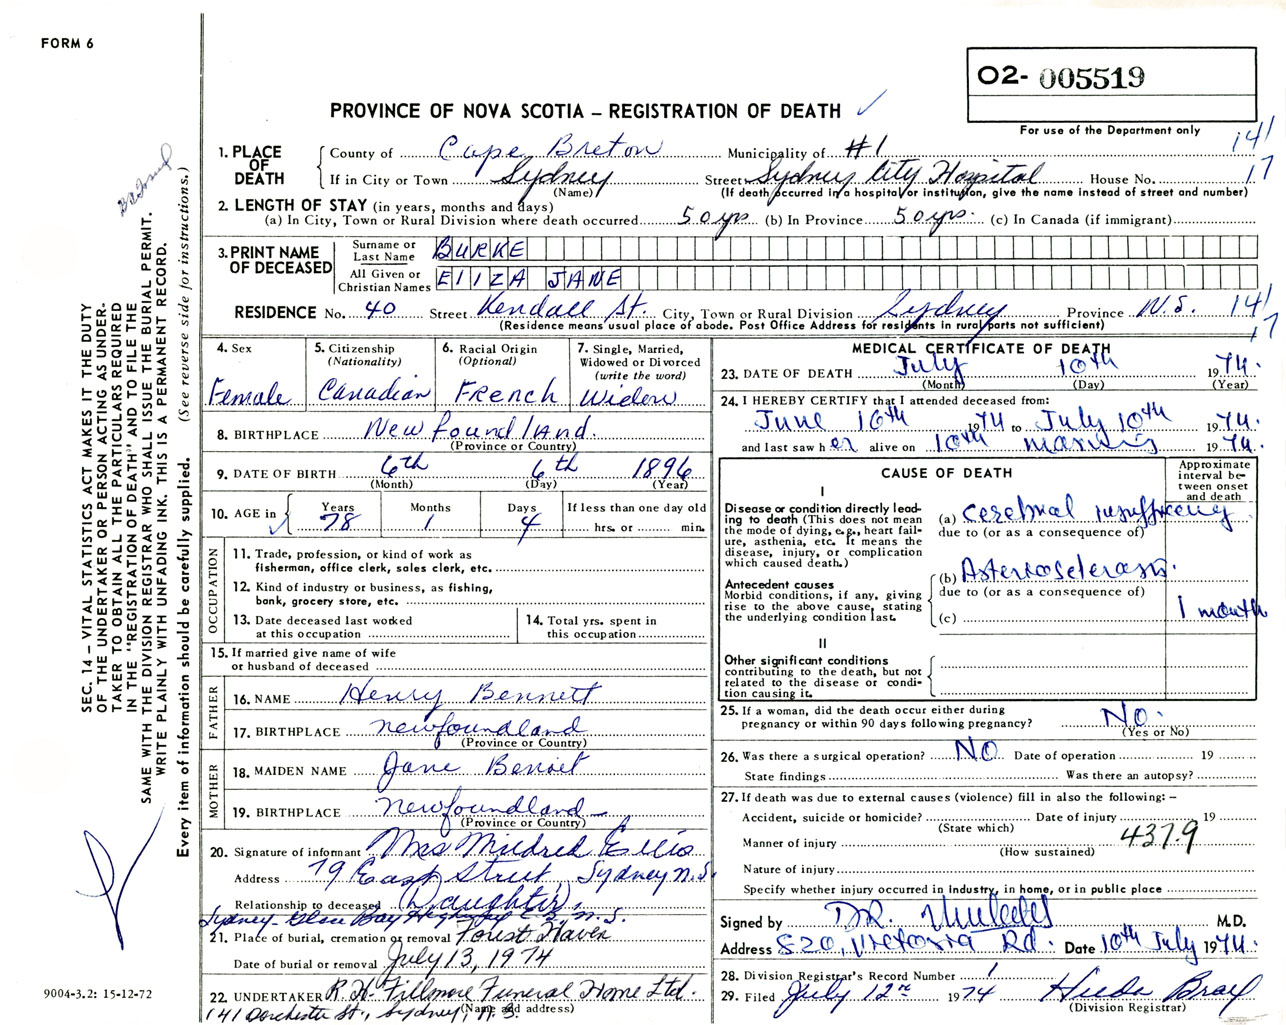 FORM 6
O2- 005519
For use of the Department only
PROVINCE OF NOVA SCOTIA – REGISTRATION OF DEATH
1. PLACE OF DEATH
County of Cape Breton Municipality of #1
141
If in City or Town Sydney Street Sydney City Hospital House No.
17
(Name) (If death occurred in a hospital or institution, give the name instead of street and number)
2. LENGTH OF STAY (in years, months and days)
(a) In City, Town or Rural Division where death occurred 50 yrs (b) In Province 50 yrs. (c) In Canada (if immigrant)
3. PRINT NAME OF DECEASED
Surname or Last Name BURKE
All Given or Christian Names ElIZA JANE
RESIDENCE No. 40 Street Kendall St. City, Town or Rural Division Sydney Province N.S. 141
(Residence means usual place of abode. Post Office Address for residents in rural parts not sufficient) 17
4. Sex
Female
5. Citizenship
(Nationality)
Canadian
6. Racial Origin
(Optional)
French
7. Single, Married, Widowed or Divorced
(write the word)
Widow
8. BIRTHPLACE Newfoundland.
(Province or Country)
9. DATE OF BIRTH 6th 6th 1896
(Month) (Day) (Year)
10. AGE in
Years Months Days If less than one day old
78 1 4 hrs. or min.
OCCUPATION
11. Trade, profession, or kind of work as fisherman, office clerk, sales clerk, etc.
12. Kind of industry or business, as fishing, bank, grocery store, etc.
13. Date deceased last worked at this occupation
14. Total yrs. spent in this occupation
15. If married give name of wife or husband of deceased
FATHER
16. NAME Henry Bennett
17. BIRTHPLACE Newfoundland
(Province or Country)
MOTHER
18. MAIDEN NAME Jane Benoit
19. BIRTHPLACE Newfoundland
(Province or Country)
20. Signature of informant Mrs Mildred
Address 79 East Street Sydney N.S.
Relationship to deceased (Daughter)
Sydney-Glace Bay Highway C.B. N.S.
21. Place of burial, cremation or removal Forest Haven
Date of burial or removal July 13, 1974
22. UNDERTAKER R.H. Fillmore Funeral Home Ltd.
(Name and address)
141 Dorchester St., Sydney, N.S.
MEDICAL CERTIFICATE OF DEATH
23. DATE OF DEATH July 10th 1974.
(Month) (Day) (Year)
24. I HEREBY CERTIFY that I attended deceased from:
June 16th 1974 to July 10th 1974.
and last saw her alive on 10th morning 1974.
CAUSE OF DEATH
Approximate interval between onset and death
I
Disease or condition directly leading to death (This does not mean the mode of dying, e.g., heart failure, asthenia, etc. It means the disease, injury, or complication which caused death.)
(a) Cerebral insufficiency
due to (or as a consequence of)
Antecedent causes
Morbid conditions, if any, giving rise to the above cause, stating the underlying condition last.
(b) Arteriosclerosis.
due to (or as a consequence of)
(c)
1 month
II
Other significant conditions contributing to the death, but not related to the disease or condition causing it.
25. If a woman, did the death occur either during pregnancy or within 90 days following pregnancy? No.
(Yes or No)
26. Was there a surgical operation? No Date of operation 19
State findings Was there an autopsy?
27. If death was due to external causes (violence) fill in also the following: –
Accident, suicide or homicide? Date of injury 19
(State which)
Manner of injury 437.9
(How sustained)
Nature of injury
Specify whether injury occurred in industry, in home, or in public place
Signed by DR. M.D.
Address 520, Victoria Rd. Date 10th July 1974.
28. Division Registrar's Record Number 1
29. Filed July 12th 1974 Hilda Bray
(Division Registrar)
SEC. 14 – VITAL STATISTICS ACT MAKES IT THE DUTY
OF THE UNDERTAKER OR PERSON ACTING AS UNDER-
TAKER TO OBTAIN ALL THE PARTICULARS REQUIRED
IN THE "REGISTRATION OF DEATH" AND TO FILE THE
SAME WITH THE DIVISION REGISTRAR WHO SHALL ISSUE THE BURIAL PERMIT.
WRITE PLAINLY WITH UNFADING INK. THIS IS A PERMANENT RECORD.
Every item of information should be carefully supplied. (See reverse side for instructions.)
9004-3.2: 15-12-72